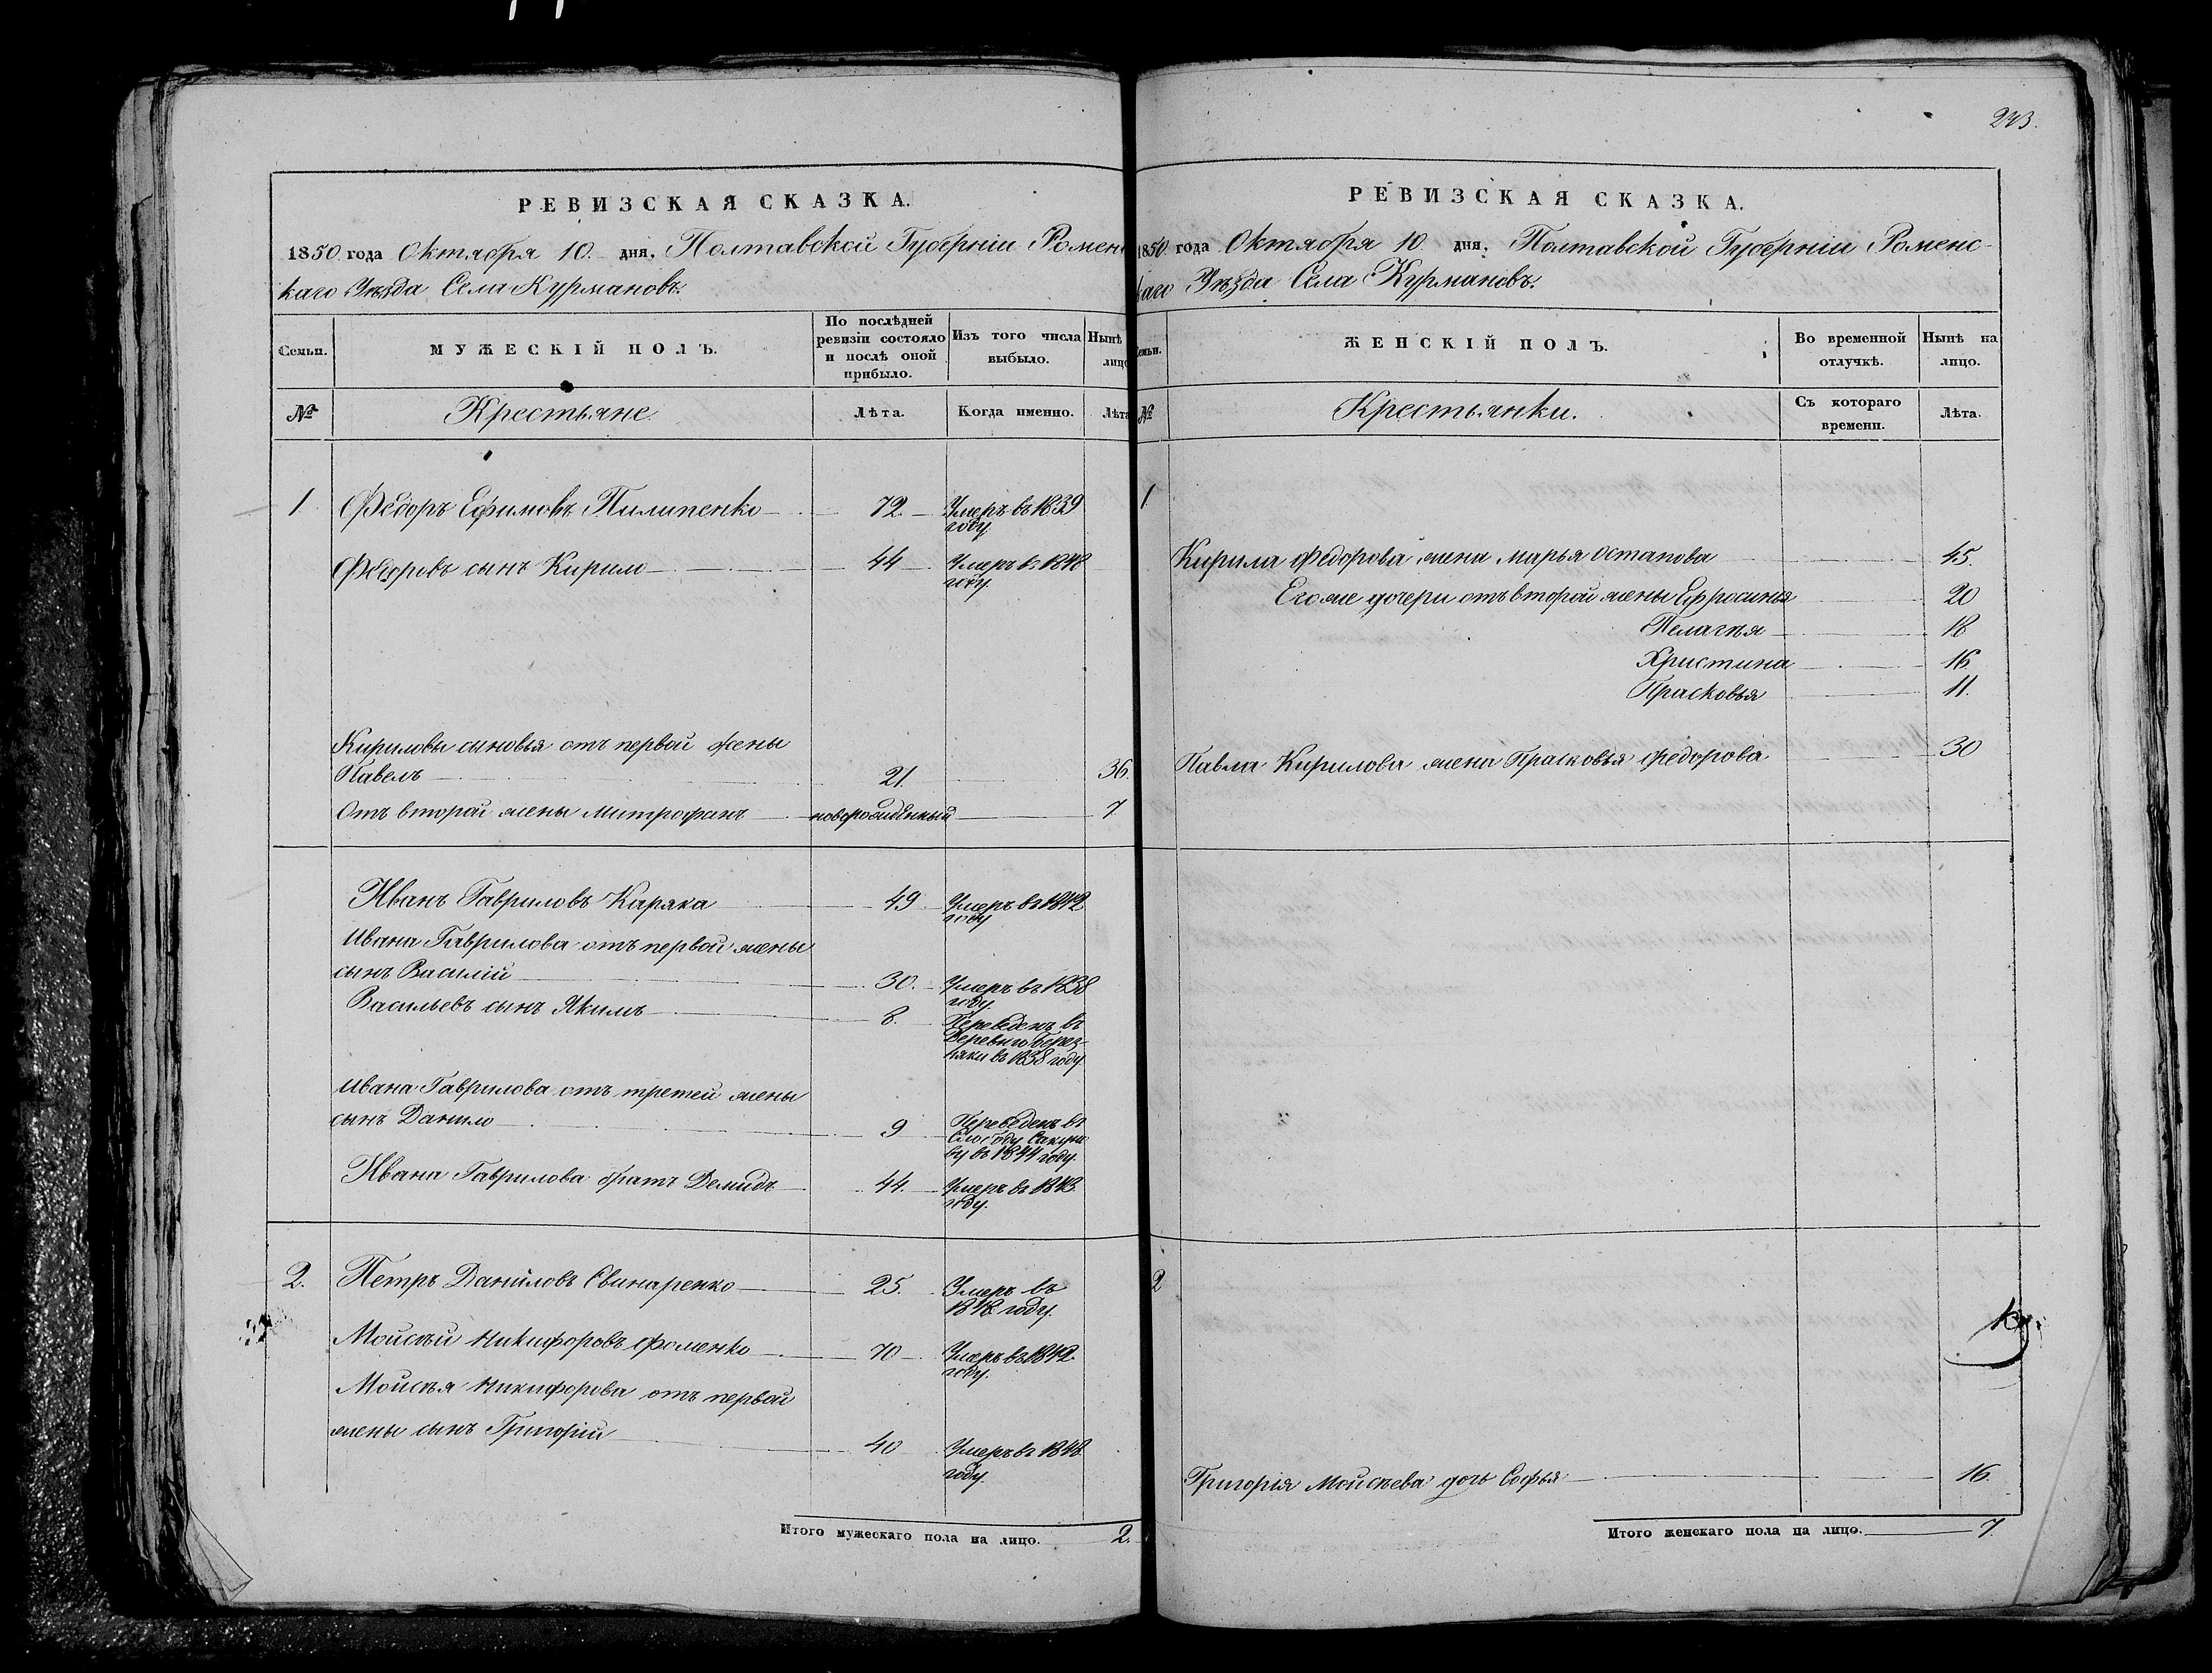 243.
РЕВИЗСКАЯ СКАЗКА.
1850 года Октября 10. дня, Полтавской Губерніи Роменс
каго Уѣзда Села Курмановъ.
Семьи.
МУЖЕСКІЙ ПОЛЪ.
По послѣдней
ревизіи состояло
и послѣ оной
прибыло.
Изъ того числа
выбыло.
Нынѣ
лицо
№
Крестьяне
Лѣта.
Когда именно.
Лѣта
1 Ѳедоръ Ефимовъ Пилипенко 72. Умеръ въ 1839
году.
Ѳедоровъ сынъ Кирило 44 Умеръ въ 1848
году.
Кириловы сыновья отъ первой жены
Павелъ 21. 36.
Отъ второй жены Митрофанъ новорожденный 7
Иванъ Гавриловъ Каряка 49 Умеръ въ 1842
году
Ивана Гаврилова отъ первой жены
сынъ Василій 30. Умеръ въ 1838
году.
Васильевъ сынъ Якимъ 8. Переведенъ въ
Деревню
въ 1838 году
Ивана Гаврилова отъ третей жены
сынъ Данило 9 Переведенъ въ
Слободу
въ 1844 году.
Ивана Гаврилова братъ Демидъ 44. Умеръ въ 1843
году.
2. Петръ Даниловъ Свинаренко 25. Умеръ въ
1848 году.
Мойсѣй Никифоровъ Фоменко 70 Умеръ въ 1842
году.
Мойсѣя Никифорова отъ первой
жены сынъ Григорій 40 Умеръ въ 1848
году.
Итого мужескаго пола на лицо. 2.
РЕВИЗСКАЯ СКАЗКА.
1850 года Октября 10 дня, Полтавской Губерніи Роменс-
каго Уѣзда Села Курмановъ.
Семьи.
ЖЕНСКІЙ ПОЛЪ.
Во временной
отлучкѣ.
Нынѣ на
лицо.
№
Крестьянки.
Съ котораго
времени.
Лѣта.
1
Кирила Ѳедорова жена Марья Остапова 45.
Его же дочери отъ второй жены Ефросинья 20
Пелагѣя 18
Христина 16
Прасковья 11.
Павла Кирилова жена Прасковья Ѳедорова 30
2
Григорія Мойсѣева дочь Софья 16
Итого женскаго пола на лицо. 7